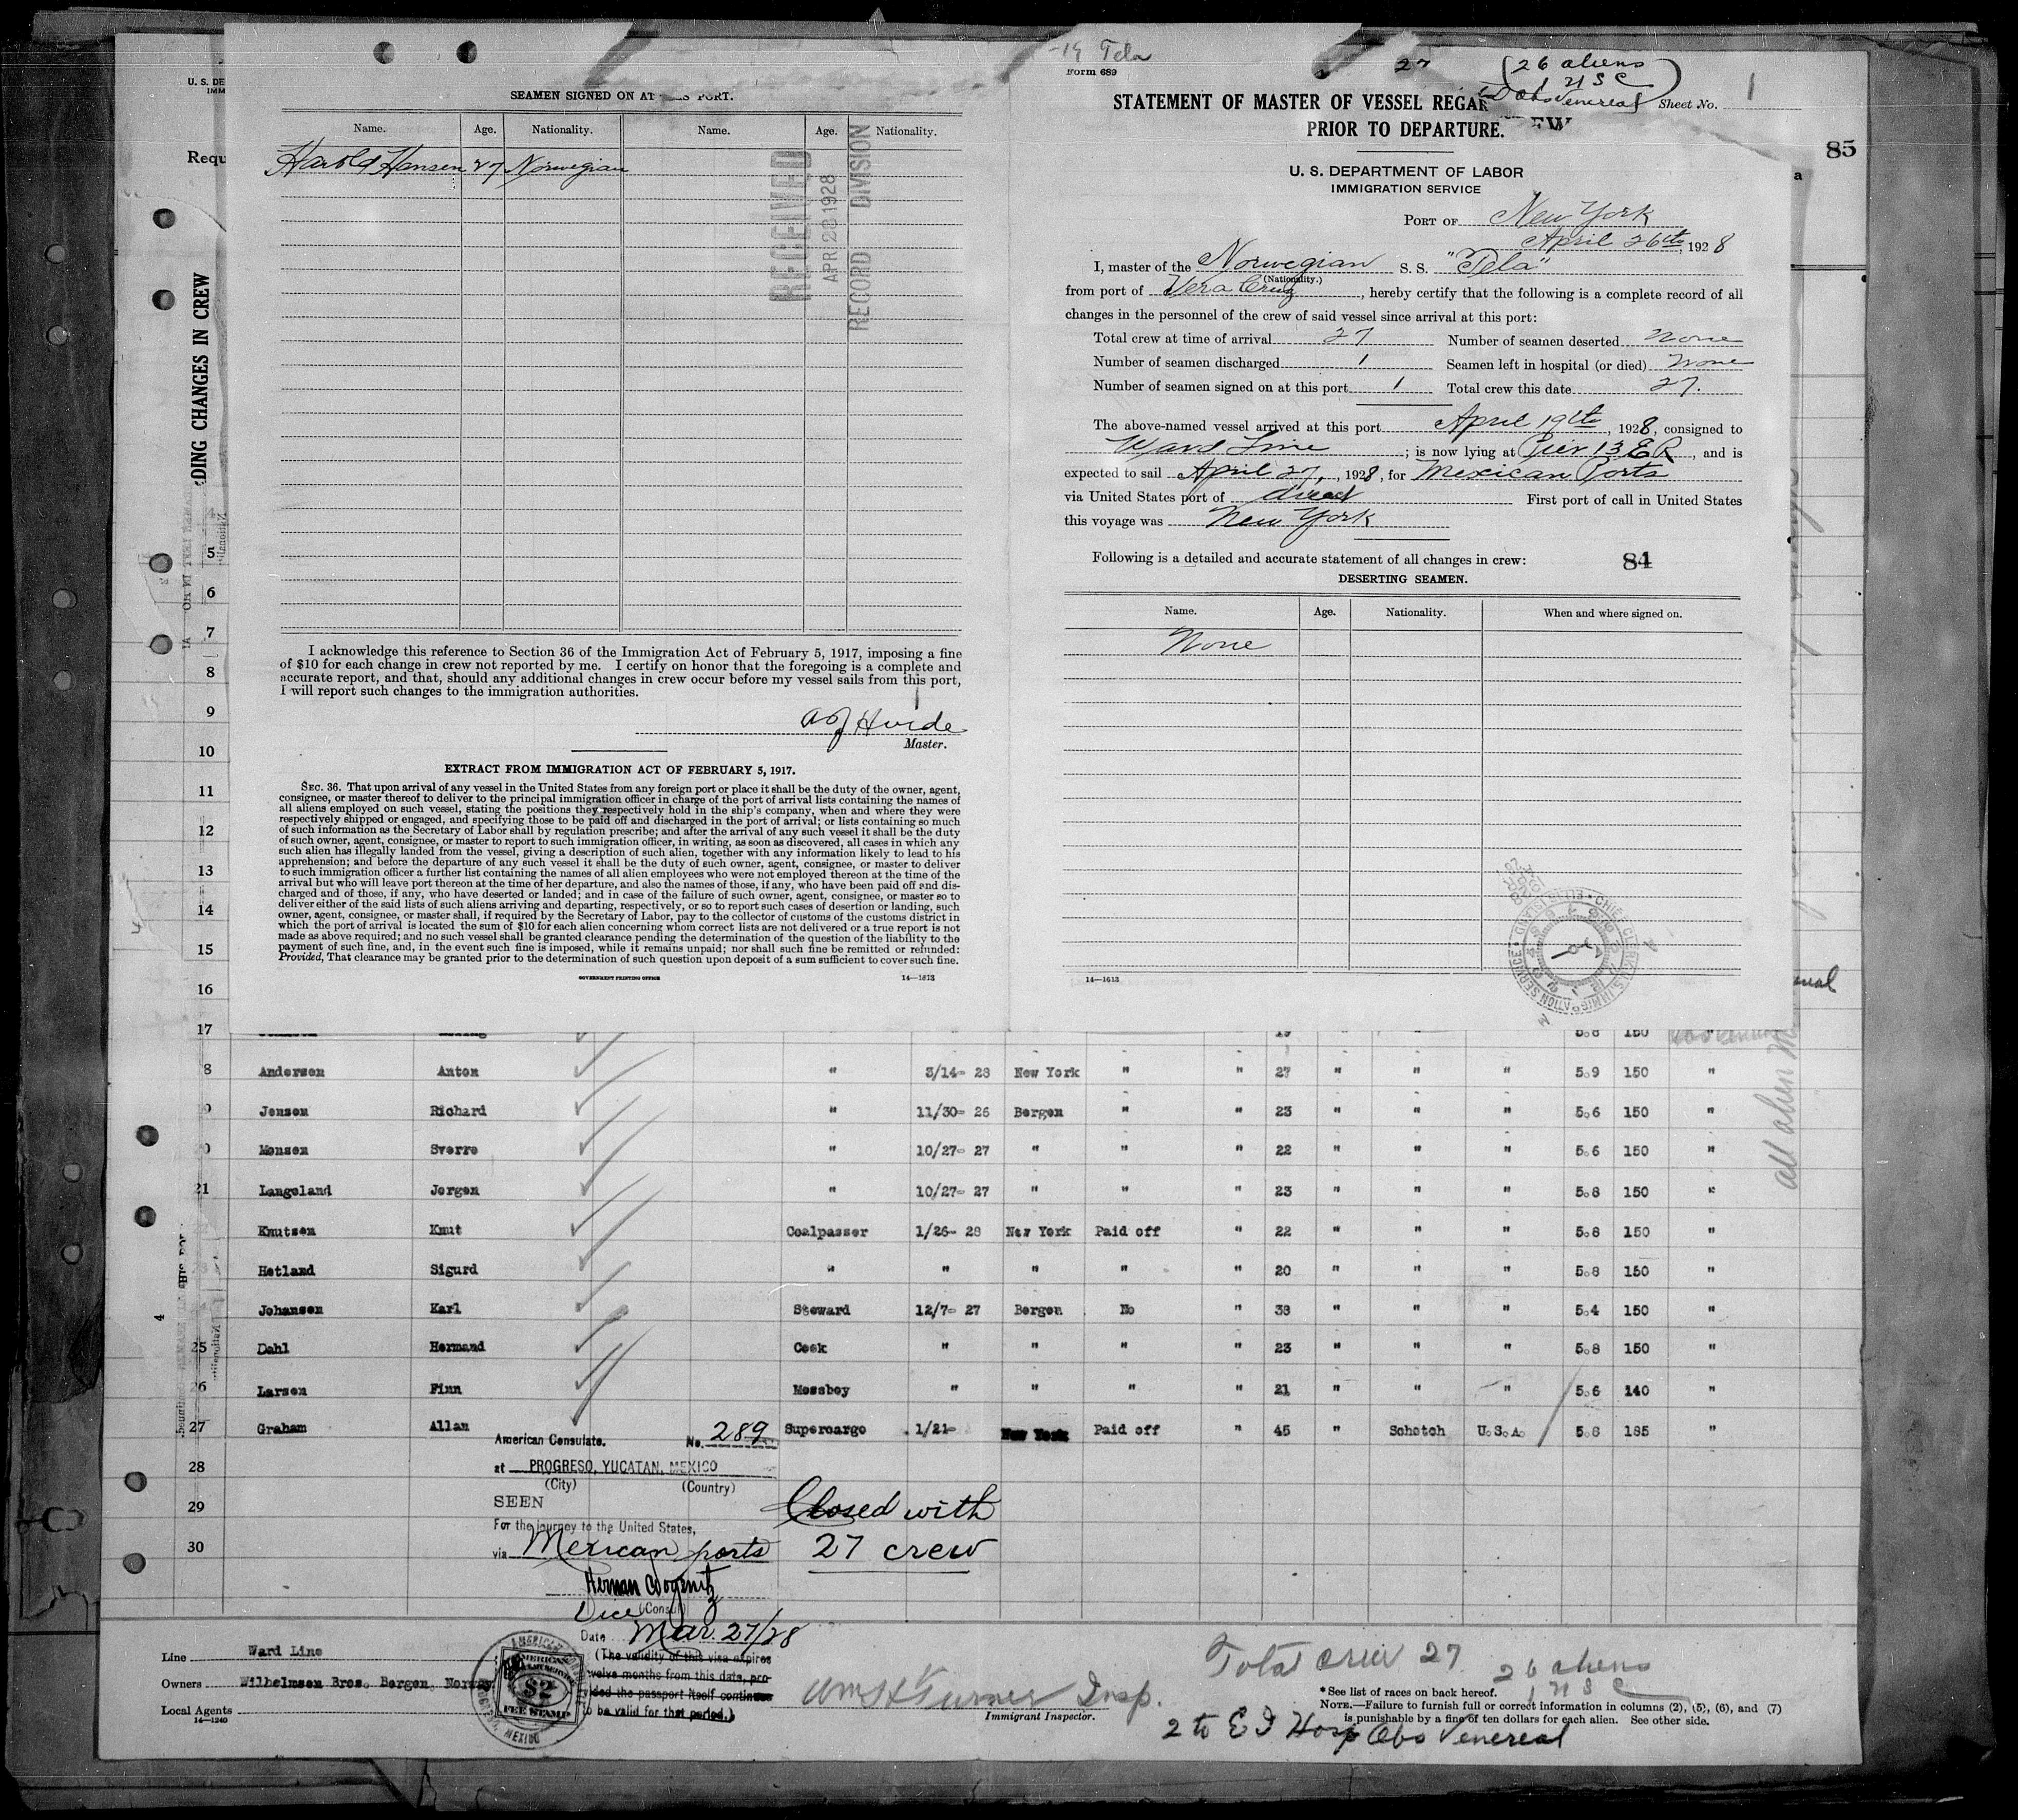 -19 Tela
Form 689
27 (26 aliens
1 USC)
Obs Venereal
Sheet No. 1
U. S. DE
IMM
Requ
85
a
DING CHANGES IN CREW
SEAMEN SIGNED ON AT PORT.
Name. Age. Nationality. Name. Age. Nationality.
Harold Hansen 27 Norwegian
RECEIVED
APR 28 1928
RECORD DIVISION
I acknowledge this reference to Section 36 of the Immigration Act of February 5, 1917, imposing a fine
of $10 for each change in crew not reported by me. I certify on honor that the foregoing is a complete and
accurate report, and that, should any additional changes in crew occur before my vessel sails from this port,
I will report such changes to the immigration authorities.
Master.
EXTRACT FROM IMMIGRATION ACT OF FEBRUARY 5, 1917.
SEC. 36. That upon arrival of any vessel in the United States from any foreign port or place it shall be the duty of the owner, agent,
consignee, or master thereof to deliver to the principal immigration officer in charge of the port of arrival lists containing the names of
all aliens employed on such vessel, stating the positions they respectively hold in the ship's company, when and where they were
respectively shipped or engaged, and specifying those to be paid off and discharged in the port of arrival; or lists containing so much
of such information as the Secretary of Labor shall by regulation prescribe; and after the arrival of any such vessel it shall be the duty
of such owner, agent, consignee, or master to report to such immigration officer, in writing, as soon as discovered, all cases in which any
such alien has illegally landed from the vessel, giving a description of such alien, together with any information likely to lead to his
apprehension; and before the departure of any such vessel it shall be the duty of such owner, agent, consignee, or master to deliver
to such immigration officer a further list containing the names of all alien employees who were not employed thereon at the time of the
arrival but who will leave port thereon at the time of her departure, and also the names of those, if any, who have been paid off and dis-
charged and of those, if any, who have deserted or landed; and in case of the failure of such owner, agent, consignee, or master so to
deliver either of the said lists of such aliens arriving and departing, respectively, or so to report such cases of desertion or landing, such
owner, agent, consignee, or master shall, if required by the Secretary of Labor, pay to the collector of customs of the customs district in
which the port of arrival is located the sum of $10 for each alien concerning whom correct lists are not delivered or a true report is not
made as above required; and no such vessel shall be granted clearance pending the determination of the question of the liability to the
payment of such fine, and, in the event such fine is imposed, while it remains unpaid; nor shall such fine be remitted or refunded:
Provided, That clearance may be granted prior to the determination of such question upon deposit of a sum sufficient to cover such fine.
GOVERNMENT PRINTING OFFICE 14—1613
STATEMENT OF MASTER OF VESSEL REGAR EW
PRIOR TO DEPARTURE.
U. S. DEPARTMENT OF LABOR
IMMIGRATION SERVICE
PORT OF New York
April 26th, 1928
I, master of the Norwegian S. S. "Tela"
(Nationality.)
from port of Vera Cruz, hereby certify that the following is a complete record of all
changes in the personnel of the crew of said vessel since arrival at this port:
Total crew at time of arrival 27 Number of seamen deserted None
Number of seamen discharged 1 Seamen left in hospital (or died) None
Number of seamen signed on at this port 1 Total crew this date 27.
The above-named vessel arrived at this port April 19th, 1928, consigned to
Ward Line; is now lying at Pier 13 ER, and is
expected to sail April 27, 1928, for Mexican Ports
via United States port of direct First port of call in United States
this voyage was New York
Following is a detailed and accurate statement of all changes in crew: 84
DESERTING SEAMEN.
Name. Age. Nationality. When and where signed on.
None
14—1613
5
6
7
8
9
10
11
12
13
14
15
16
17 19 5.8 150
8 Andersen Anton " 3/14- 28 New York " " 27 " " " 5.9 150 "
Jensen Richard " 11/30- 26 Bergen " " 23 " " " 5.6 150 "
Monsen Sverre " 10/27- 27 " " " 22 " " " 5.6 150 "
21 Langeland Jorgen " 10/27- 27 " " " 23 " " " 5.8 150 "
Knutsen Knut Coalpasser 1/26- 28 New York Paid off " 22 " " " 5.8 150 "
Hetland Sigurd " " " " " 20 " " " 5.8 150 "
Johansen Karl Steward 12/7- 27 Bergen No " 38 " " " 5.4 150 "
25 Dahl Hermand Cook " " " " 23 " " " 5.8 150 "
26 Larsen Finn Messboy " " " " 21 " " " 5.6 140 "
27 Graham Allan Supercargo 1/21- New York Paid off " 45 " Schotch U.S.A. 5.8 185 "
all alien
28
29
30
American Consulate. No. 289
at PROGRESO, YUCATAN, MEXICO
(City) (Country)
SEEN
For the journey to the United States,
via Mexican ports
Vice (Consul)
Date Mar. 27/28
(The validity of this visa expires
twelve months from this date, pro-
ded the passport itself continues
to be valid for that period.)
Closed with
27 crew
AMERICAN
$2
FEE STAMP
MEXICO
Line Ward Line
Owners Wilhelmsen Bros. Bergen, Norway
Local Agents
14—1240
Wm H Turner Insp.
Immigrant Inspector.
Total crew 27
26 aliens
1 USC
*See list of races on back hereof.
NOTE.—Failure to furnish full or correct information in columns (2), (5), (6), and (7)
is punishable by a fine of ten dollars for each alien. See other side.
2 to E I Hosp Obs Venereal